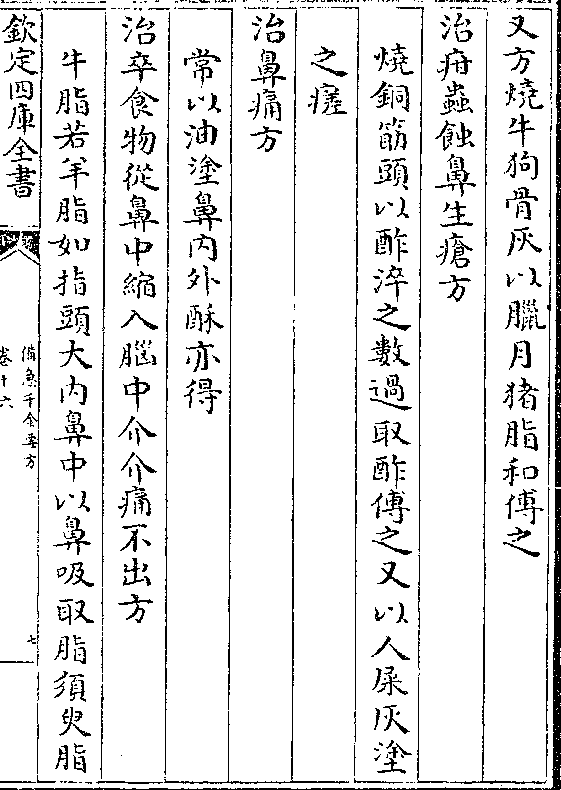 又方燒牛狗骨灰以臘月猪脂和傅之
治疳蟲蝕鼻生瘡方
燒銅筯頭以酢淬之數過取酢傅之又以人屎灰塗
之瘥
治鼻痛方
常以油塗鼻内外酥亦得
治卒食物從鼻中縮入腦中介介痛不出方
牛脂若羊脂如指頭大内鼻中以鼻吸取脂須臾脂
欽定四庫全書
備急千金要方
卷十六
七